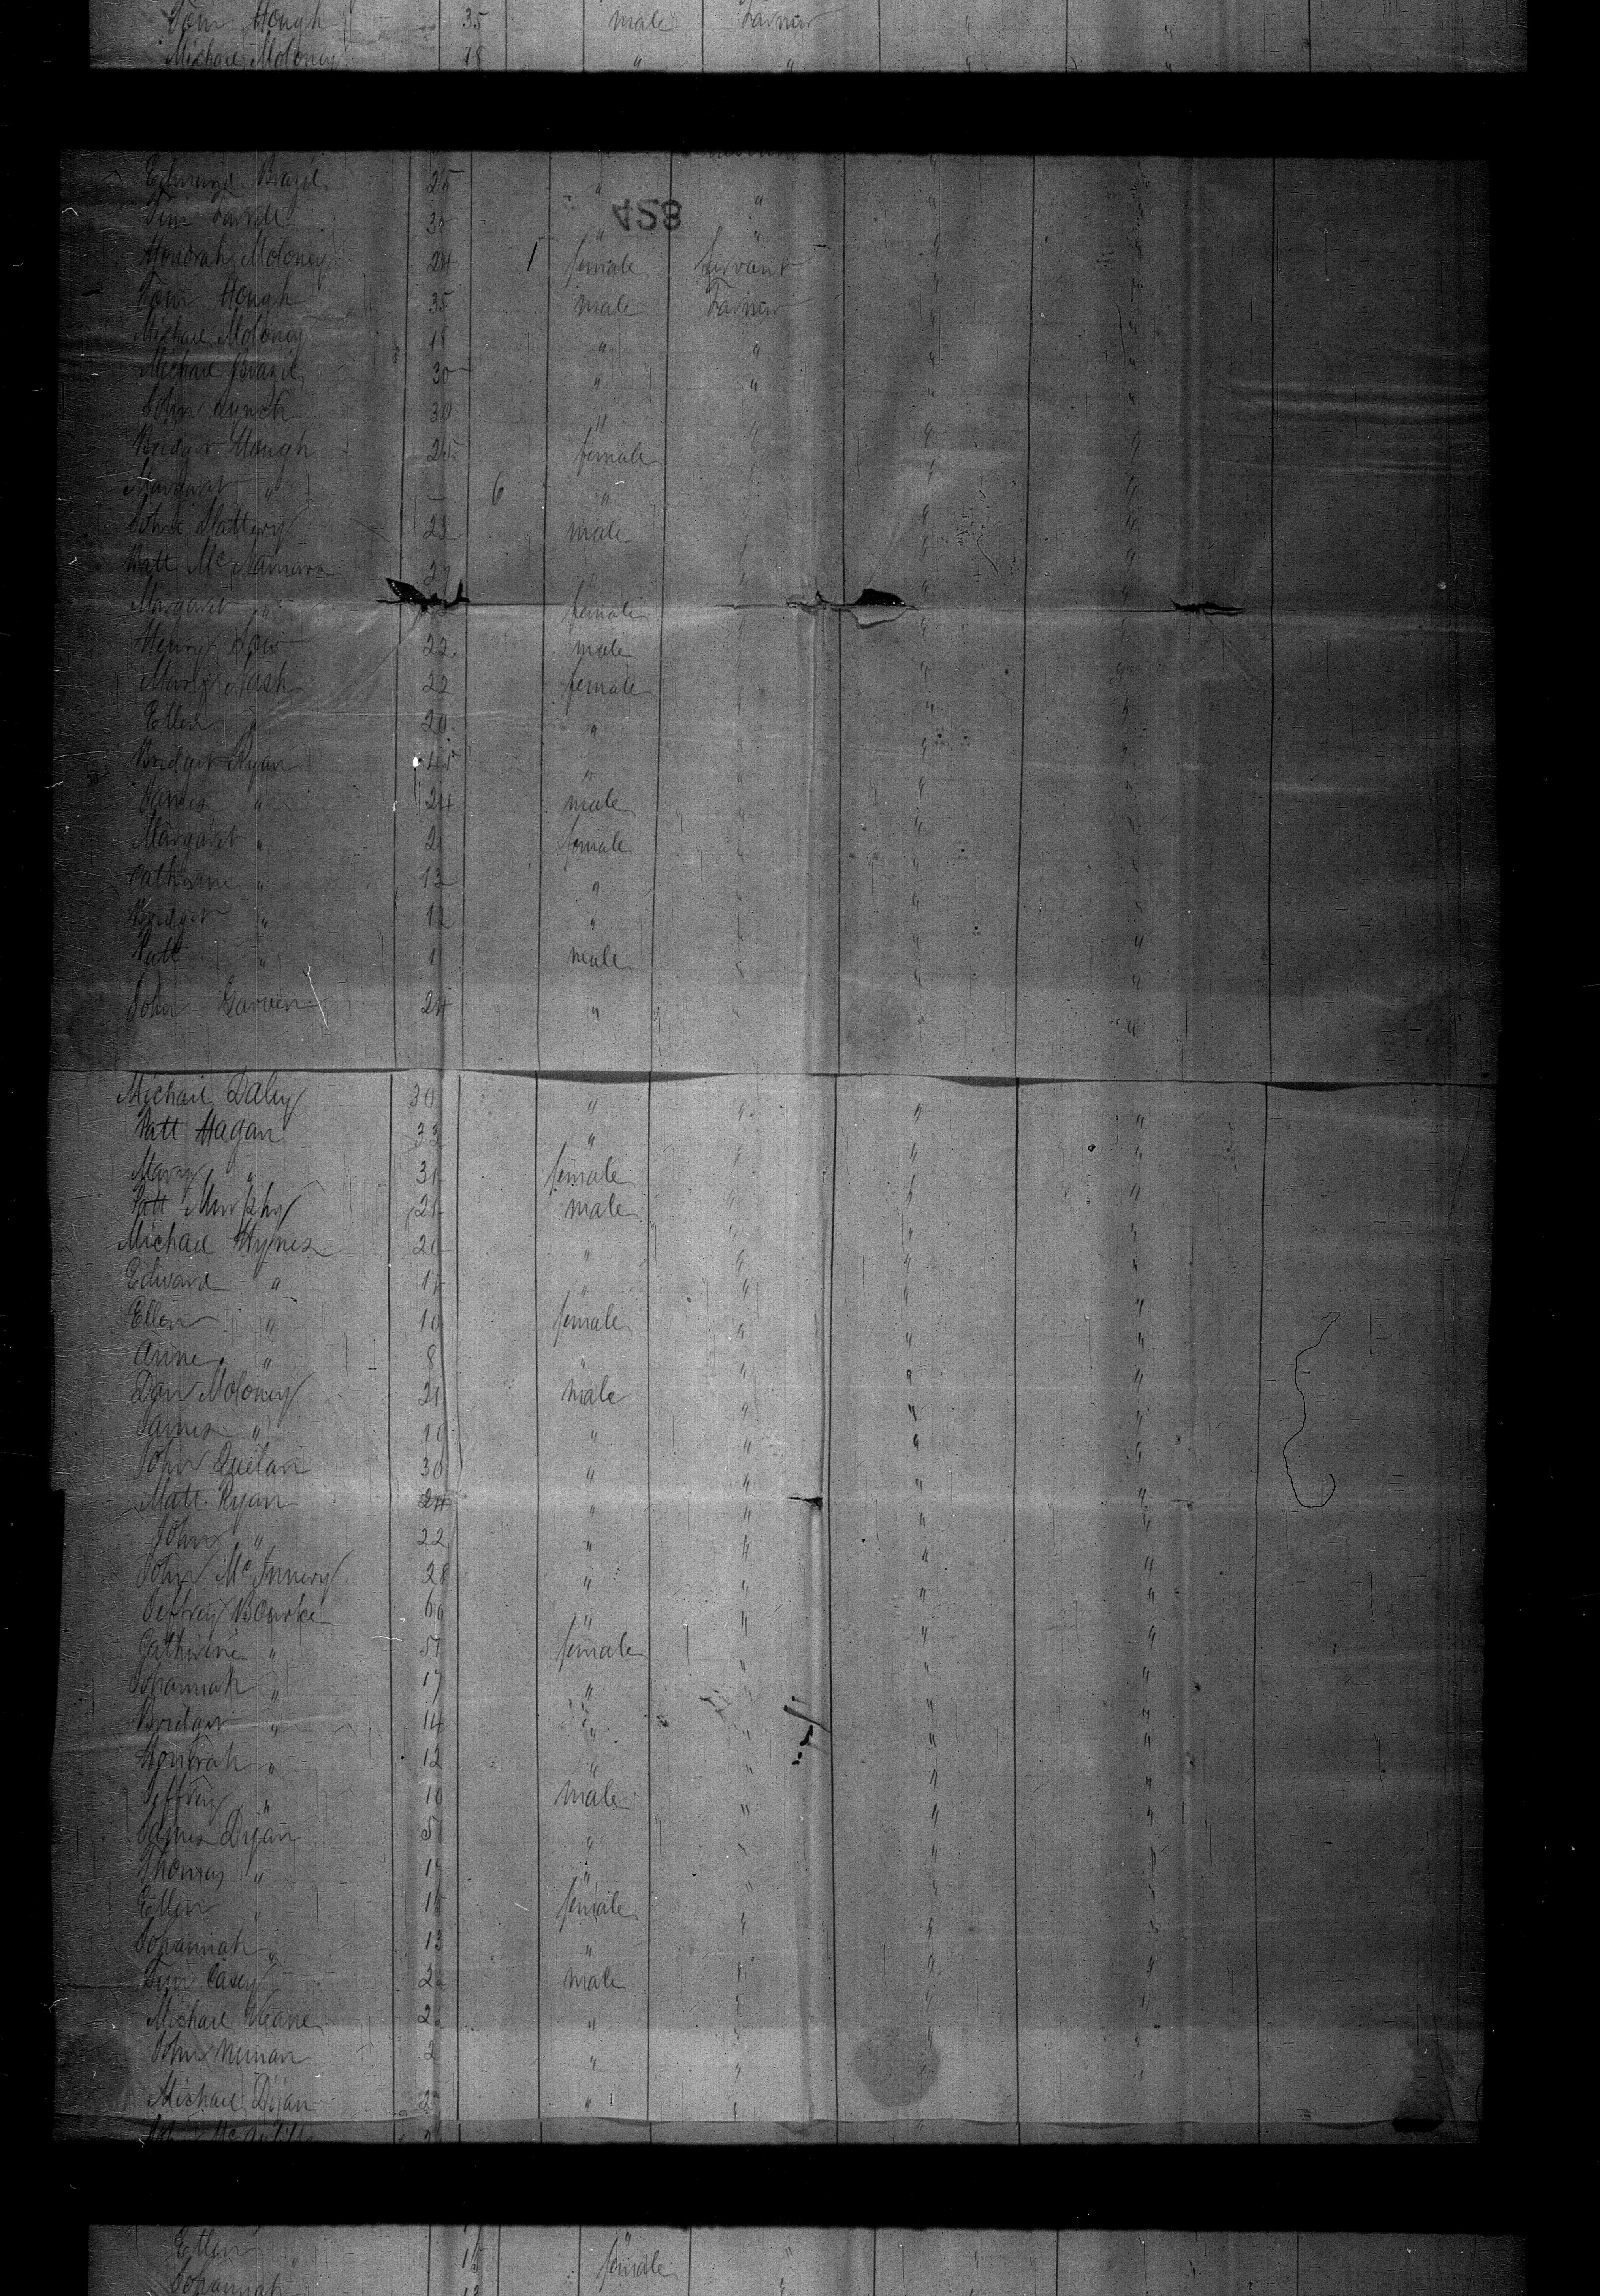 Tom Hough 35 male Farmer " "
Michael Moloney 18 " " " "
Edmund Brazil 25 " " " "
428
Tim 30 " " " "
Honorah Moloney 24 1 female Servant " "
Tom Hough 35 male Farmer " "
Michael Moloney 18 " " " "
Michael Brazil 30 " " " "
John Lynch 30 " " " "
Bridget Hough 25 female " " "
Margaret " 6 " " " "
John Slattery 22 male " " "
Patt McNamara 27 " " " "
Margaret " female " " "
Henry 22 male " " "
Mary Nash 22 female " " "
Ellen " 20 " " " "
Bridget Ryan 45 " " " "
James " 24 male " " "
Margaret " 2 female " " "
Catherine " 13 " " " "
Bridget " 12 " " " "
Patt " 1 male " " "
John Garven 24 " " " "
Michael Daley 30 " " " "
Patt Hagan 33 " " " "
Mary " 31 female " " "
Patt Murphy 21 male " " "
Michael Hynes 20 " " " "
Edward " 1 " " " "
Ellen " 10 female " " "
Anne " 8 " " " "
Dan Moloney 21 male " " "
James " 1 " " " "
John Quilan 30 " " " "
Matt Ryan 24 " " " "
John " 22 " " " "
John McInnery 28 " " " "
Jeffrey Bourke 60 " " " "
Catherine " 51 female " " "
Johannah " 17 " " " "
Bridget " 14 " " " "
Honorah " 12 " " " "
Jeffrey " 10 male " " "
James Dijan 5 " " " "
Thomas " 17 " " " "
Ellen " 15 female " " "
Johannah " 13 " " " "
Tim Casey 2 male " " "
Michael Keane 2 " " " "
John 2 " " " "
Michael Dijan 2 " " " "
Ellen " 15 female " " "
Johannah " 13